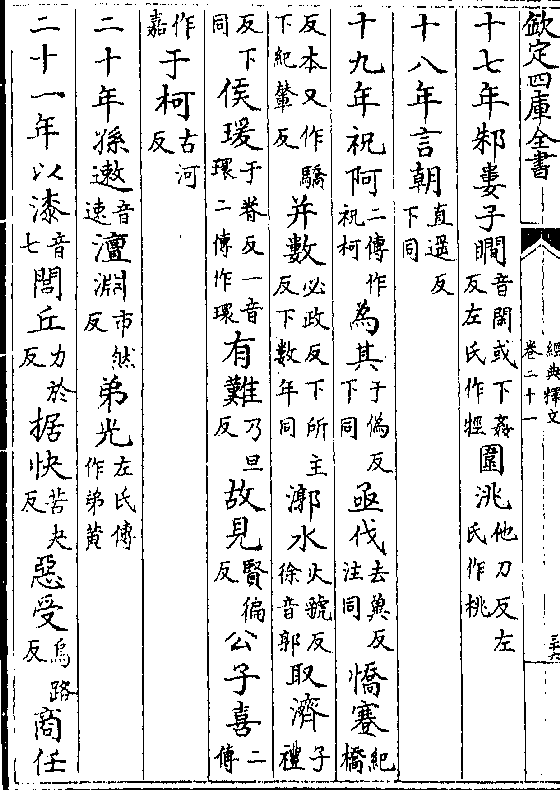 欽定四庫全書
經典釋文
卷二十一
三十六
十七年邾婁子瞷音閑或下姦反左氏作牼圍洮他刀反左氏作桃
十八年言朝直遥反下同
十九年祝阿二傳作祝柯為其于偽反下同亟伐去冀反注同憍蹇紀橋
反本又作驕下紀輦反并數必政反下所主反下數年同漷水火虢反徐音郭取濟子禮
反下同侯瑗于眷反一音環二傳作環有難乃旦反故見賢徧反公子喜二傳
作嘉于柯古河反
二十年孫遬音速澶淵市然反弟光左氏傳作弟黄
二十一年以漆音七閭丘力於反据快苦夬反惡受烏路反商任